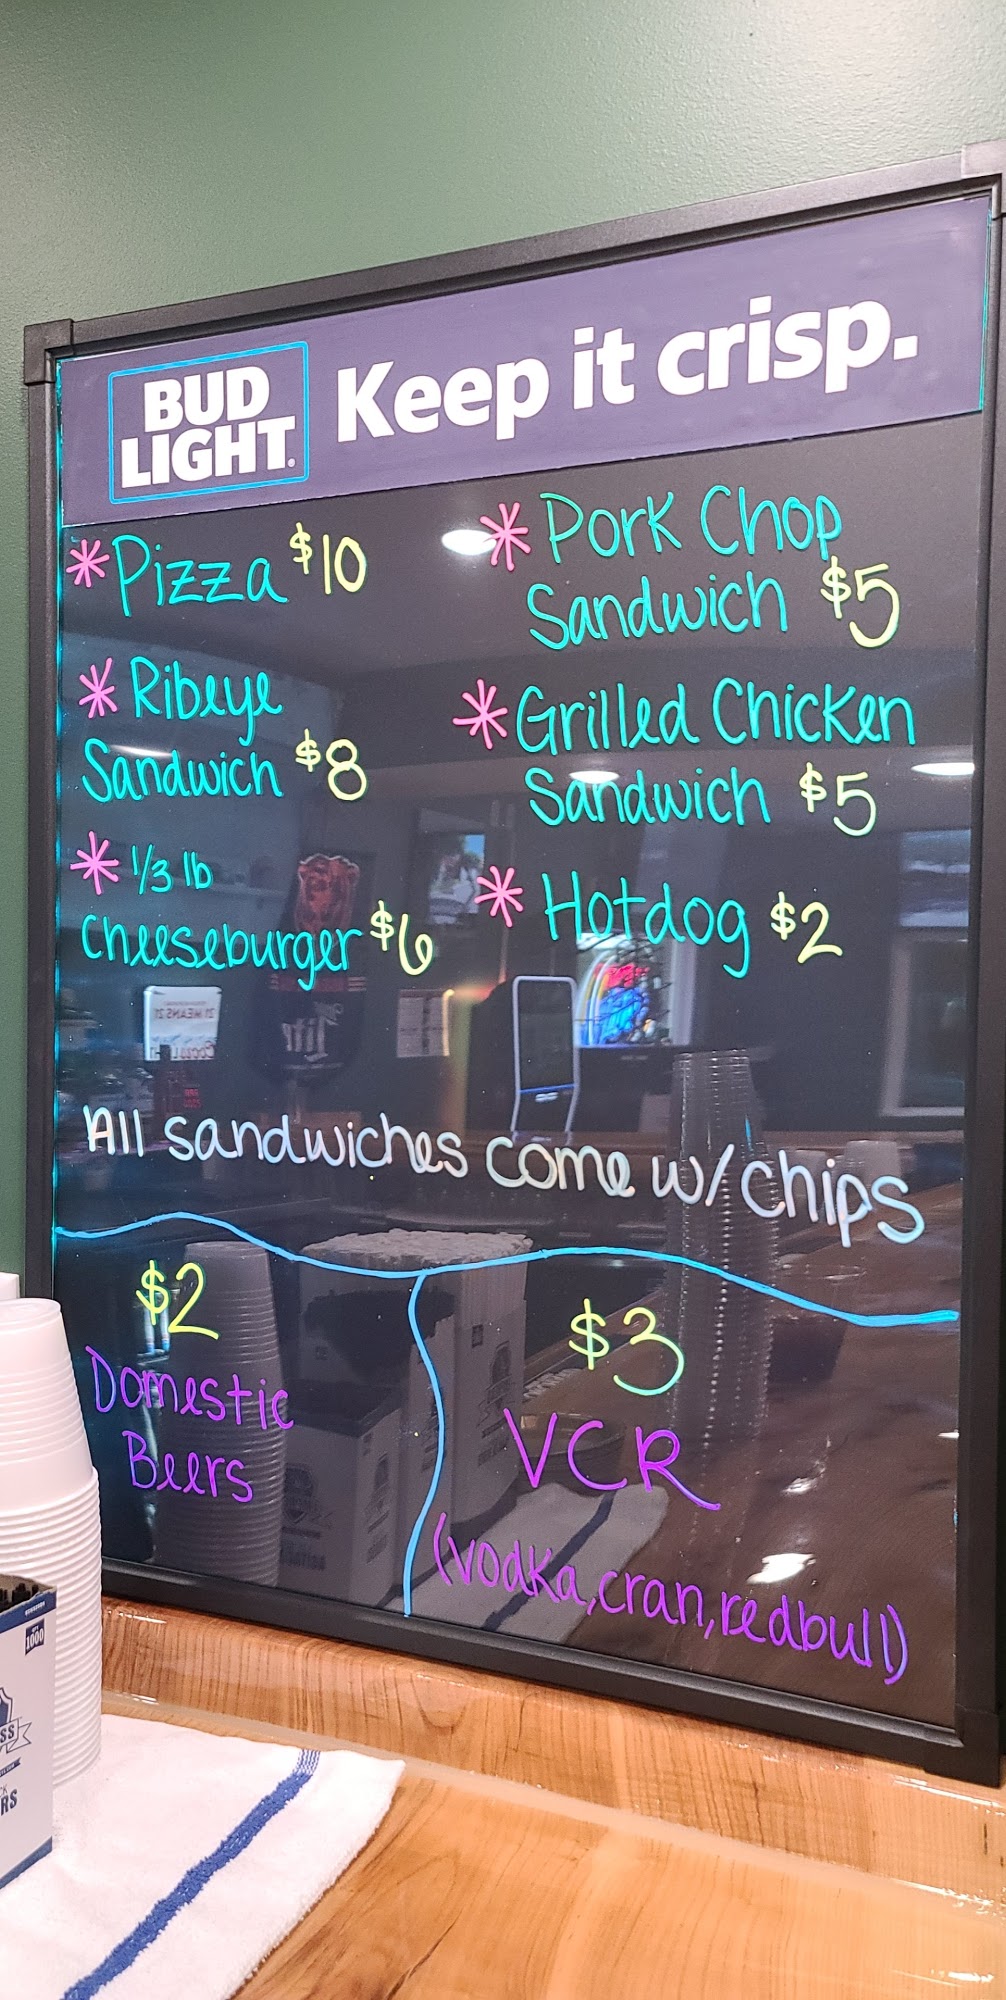 BUD
LIGHT.
Keep it crisp.
* Pizza $10
* Ribeye
Sandwich $8
* 1/3 lb
cheeseburger $6
* Pork Chop
Sandwich $5
* Grilled Chicken
Sandwich $5
* Hotdog $2
All sandwiches come w/ chips
$2
Domestic
Beers
$3
VCR
(vodka, cran, redbull)
1000
SS
RS